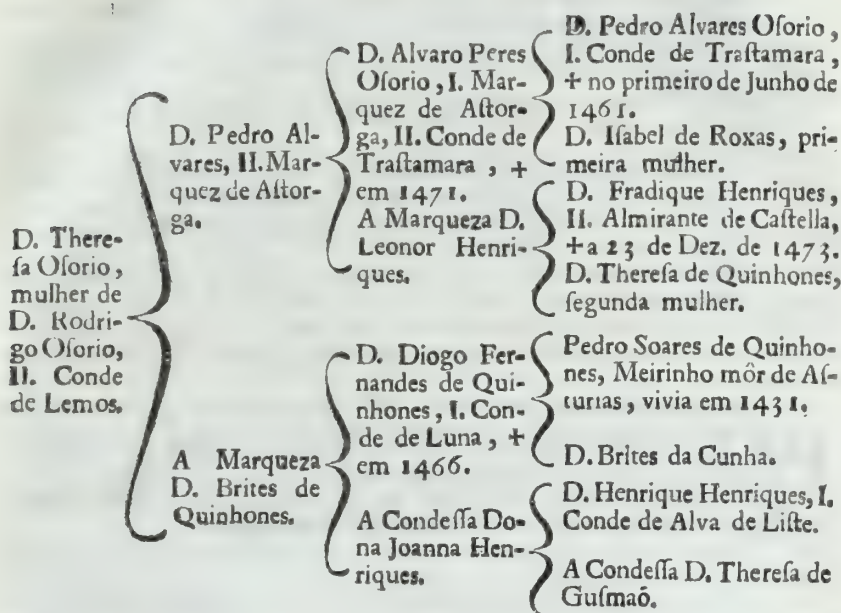 D. There-
ſa Oſorio,
mulher de
D. Rodri-
go Oſorio,
II. Conde
de Lemos.
D. Pedro Al-
vares, II. Mar-
quez de Aſtor-
ga.
A Marqueza
D. Brites de
Quinhones.
D. Alvaro Peres
Oſorio, I. Mar-
quez de Aſtor-
ga, II. Conde de
Traſtamara, +
em 1471.
A Marqueza D.
Leonor Henri-
ques.
D. Diogo Fer-
nandes de Qui-
nhones, I. Con-
de de Luna, +
em 1466.
A Condeſſa Do-
na Joanna Hen-
riques.
D. Pedro Alvares Oſorio,
I. Conde de Traſtamara,
+ no primeiro de Junho de
1461.
D. Iſabel de Roxas, pri-
meira mulher.
D. Fradique Henriques,
II. Almirante de Caſtella,
+ a 23 de Dez. de 1473.
D. Thereſa de Quinhones,
ſegunda mulher.
Pedro Soares de Quinho-
nes, Meirinho môr de Aſ-
turias, vivia em 1431.
D. Brites da Cunha.
D. Henrique Henriques, I.
Conde de Alva de Liſte.
A Condeſſa D. Thereſa de
Guſmaõ.